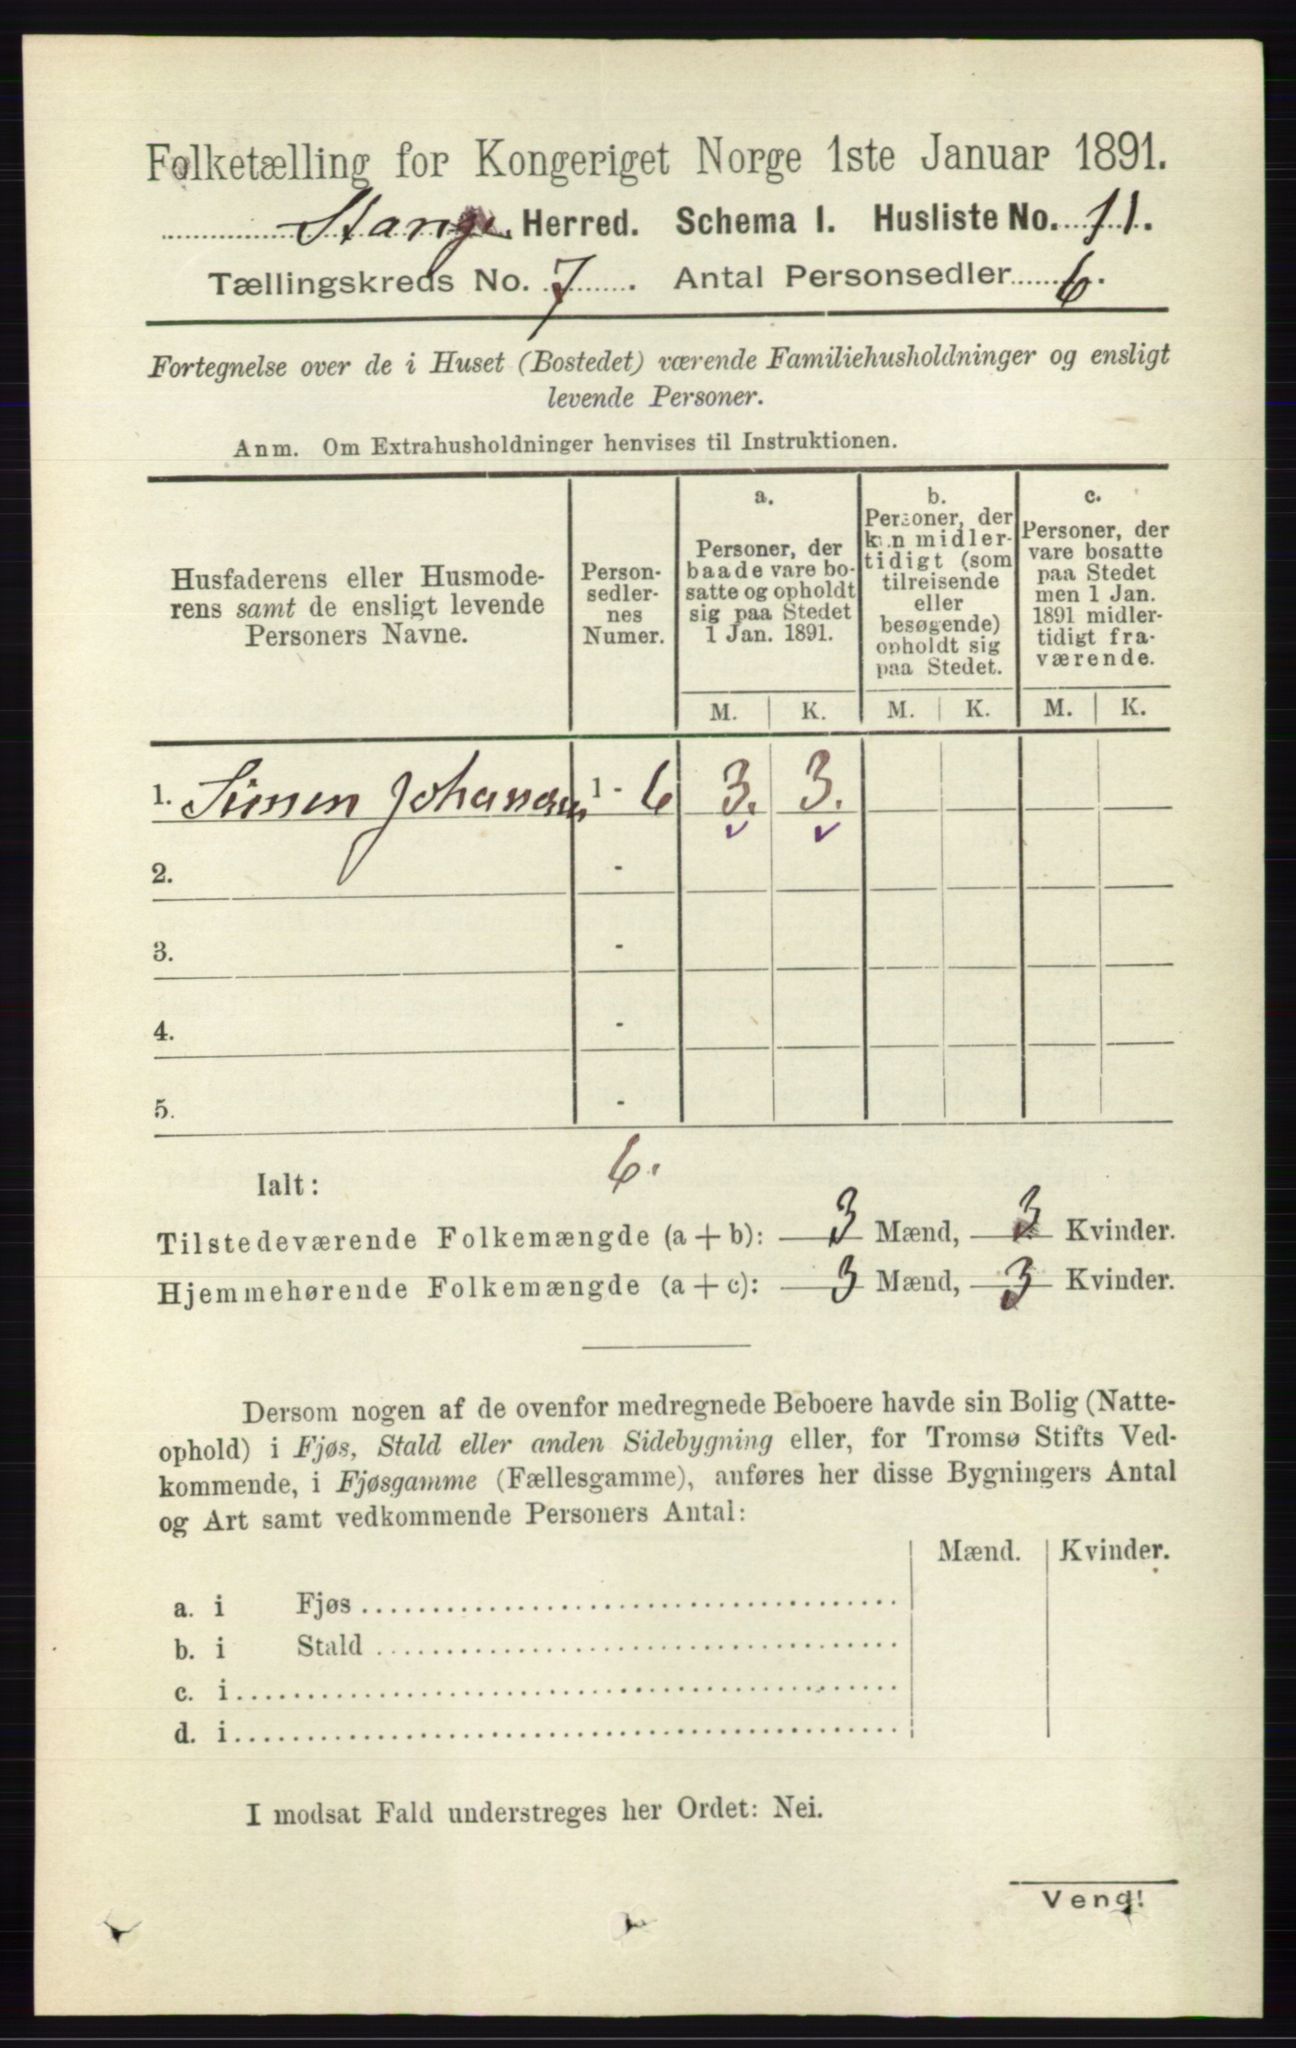 Folketælling for Kongeriget Norge 1ste Januar 1891.
Stange Herred. Schema I. Husliste No. 11.
Tællingskreds No. 7. Antal Personsedler 6.
Fortegnelse over de i Huset (Bostedet) værende Familiehusholdninger og ensligt
levende Personer.
Anm. Om Extrahusholdninger henvises til Instruktionen.
Husfaderens eller Husmode-
rens samt de ensligt levende
Personers Navne.
Person-
sedler-
nes
Numer.
a.
Personer, der
baade vare bo-
satte og opholdt
sig paa Stedet
1 Jan. 1891.
b.
Personer, der
kun midler-
tidigt (som
tilreisende
eller
besøgende)
opholdt sig
paa Stedet.
c.
Personer, der
vare bosatte
paa Stedet
men 1 Jan.
1891 midler-
tidigt fra-
værende.
M. K. M. K. M. K.
1. Simen Johansen 1 - 6 3. 3.
2. -
3. -
4. -
5. -
6.
Ialt:
Tilstedeværende Folkemængde (a + b): 3 Mænd, 3 Kvinder.
Hjemmehørende Folkemængde (a + c): 3 Mænd, 3 Kvinder.
Dersom nogen af de ovenfor medregnede Beboere havde sin Bolig (Natte-
ophold) i Fjøs, Stald eller anden Sidebygning eller, for Tromsø Stifts Ved-
kommende, i Fjøsgamme (Fællesgamme), anføres her disse Bygningers Antal
og Art samt vedkommende Personers Antal:
Mænd. Kvinder.
a. i Fjøs
b. i Stald
c. i
d. i
I modsat Fald understreges her Ordet: Nei.
Vend!